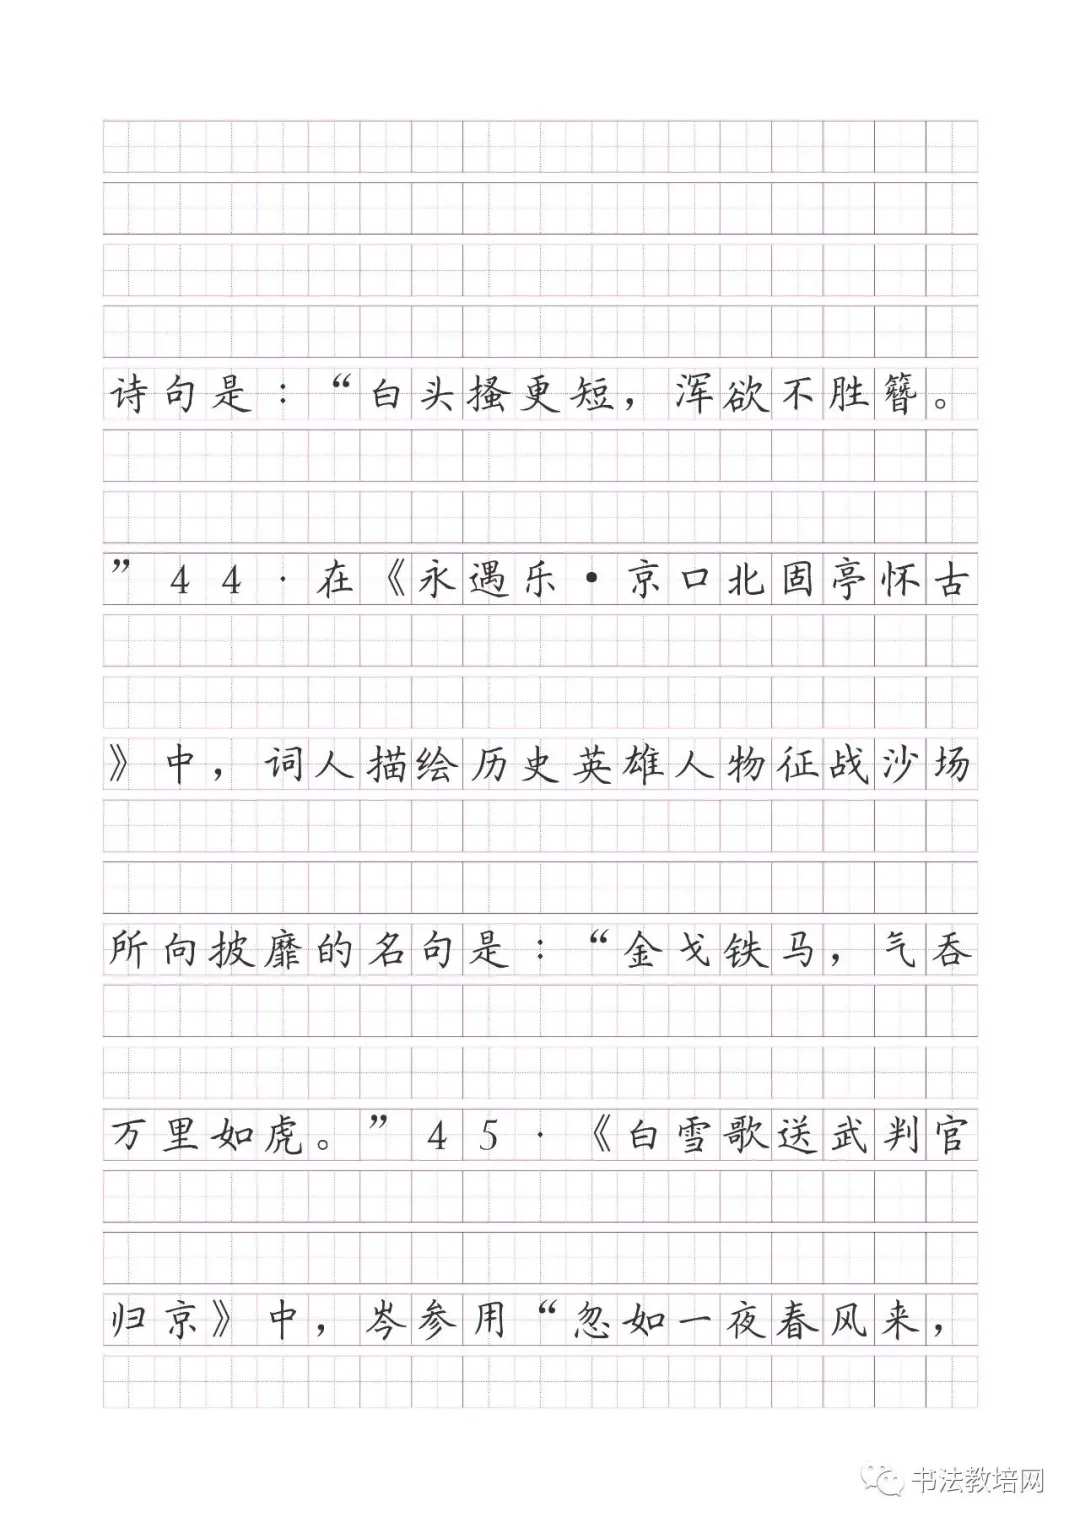 诗句是：“白头搔更短，浑欲不胜簪。
”44.在《永遇乐·京口北固亭怀古
》中，词人描绘历史英雄人物征战沙场
所向披靡的名句是：“金戈铁马，气吞
万里如虎。”45.《白雪歌送武判官
归京》中，岑参用“忽如一夜春风来，
书法教培网